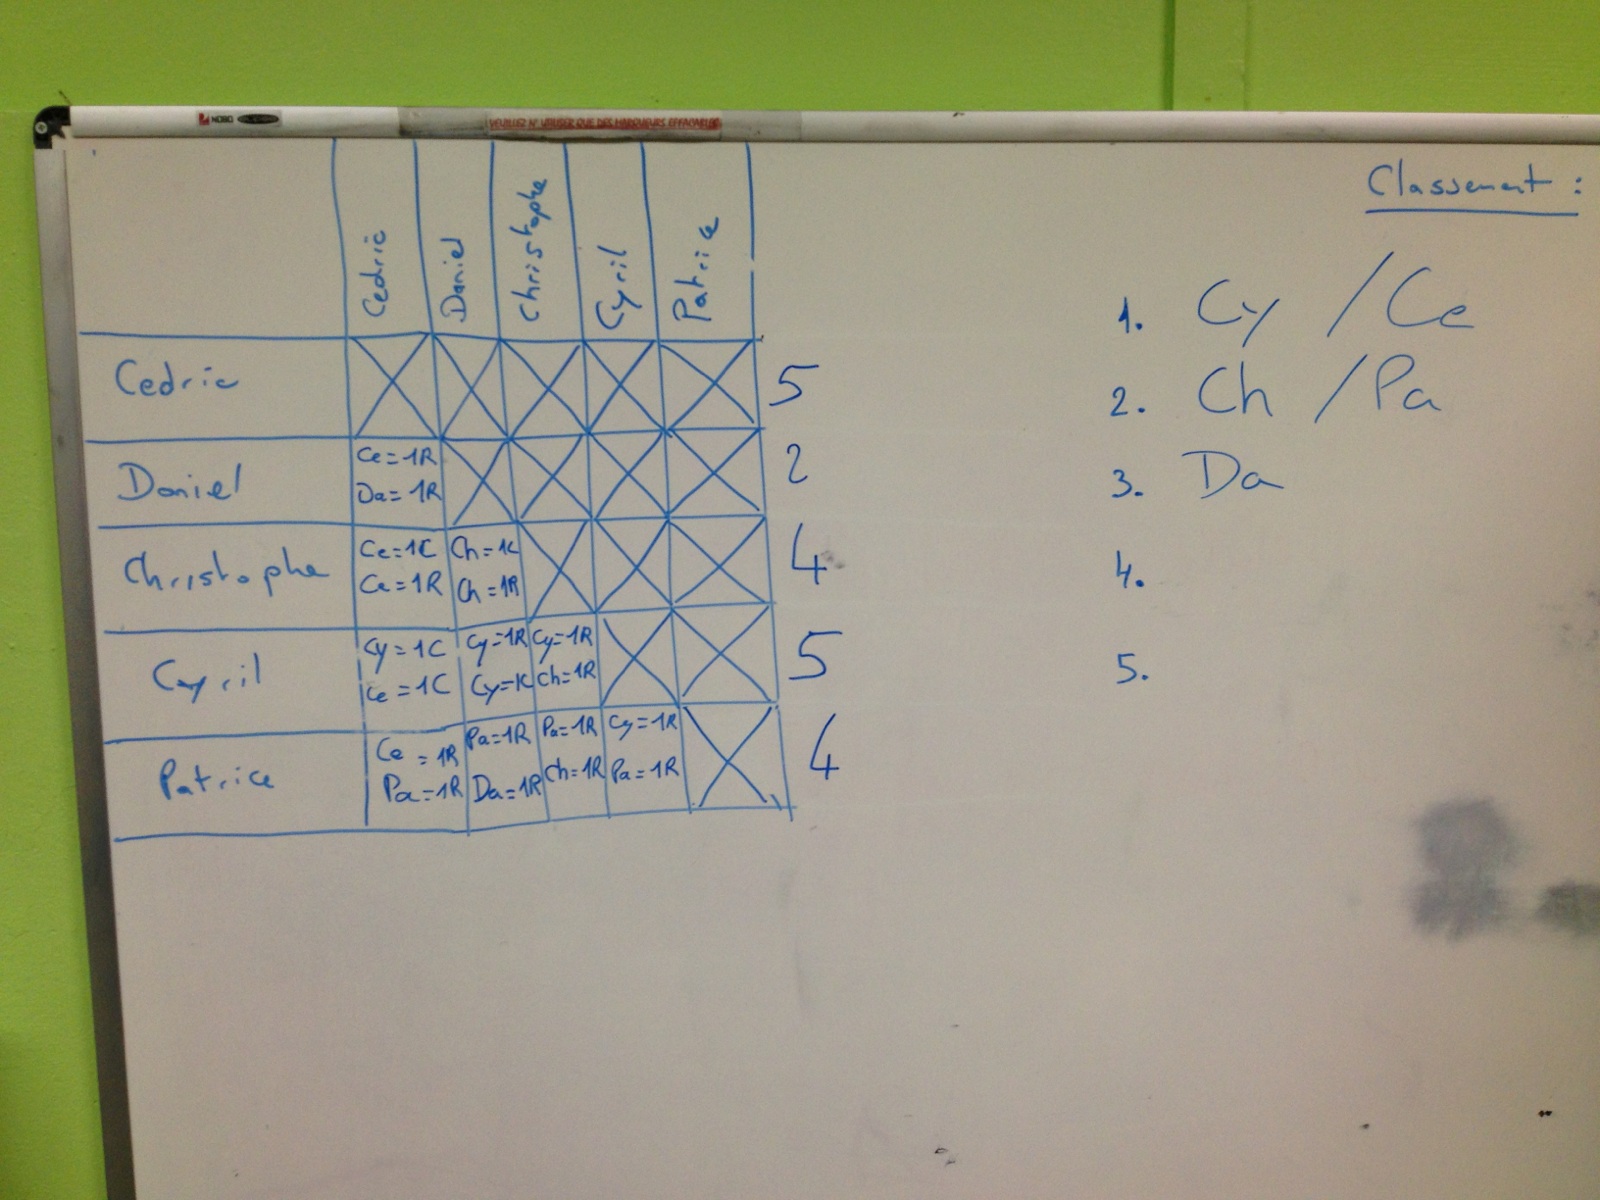 NOBO
VEUILLEZ N'UTILISER QUE DES MARQUEURS EFFACABLES
Classement :
Cedric Daniel Christophe Cyril Patrice
1. Cy / Ce
2. Ch / Pa
3. Da
4.
5.
Cedric 5
Daniel Ce=1R 2
Da=1R
Christophe Ce=1C Ch=1C 4
Ce=1R Ch=1R
Cyril Cy=1C Cy=1R Cy=1R 5
Ce=1C Cy=1C Ch=1R
Patrice Ce=1R Pa=1R Pa=1R Cy=1R 4
Pa=1R Da=1R Ch=1R Pa=1R